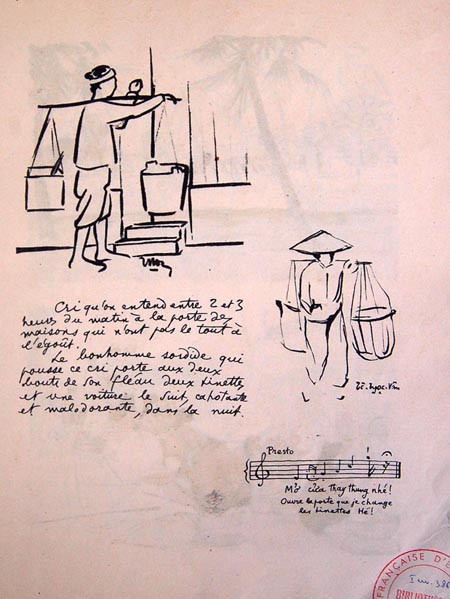 Cri qu'on entend entre 2 et 3
heures du matin à la porte des
maisons qui n'ont pas le tout à
l'égoût.
Le bonhomme sordide qui
pousse ce cri porte aux deux
bouts de son fléau deux tinettes,
et une voiture le suit, cahotante
et malodorante, dans la nuit.
Presto
Mở cửa thay thùng nhé!
Ouvre la porte que je change
les tinettes Hé!
FRANÇAISE D'E